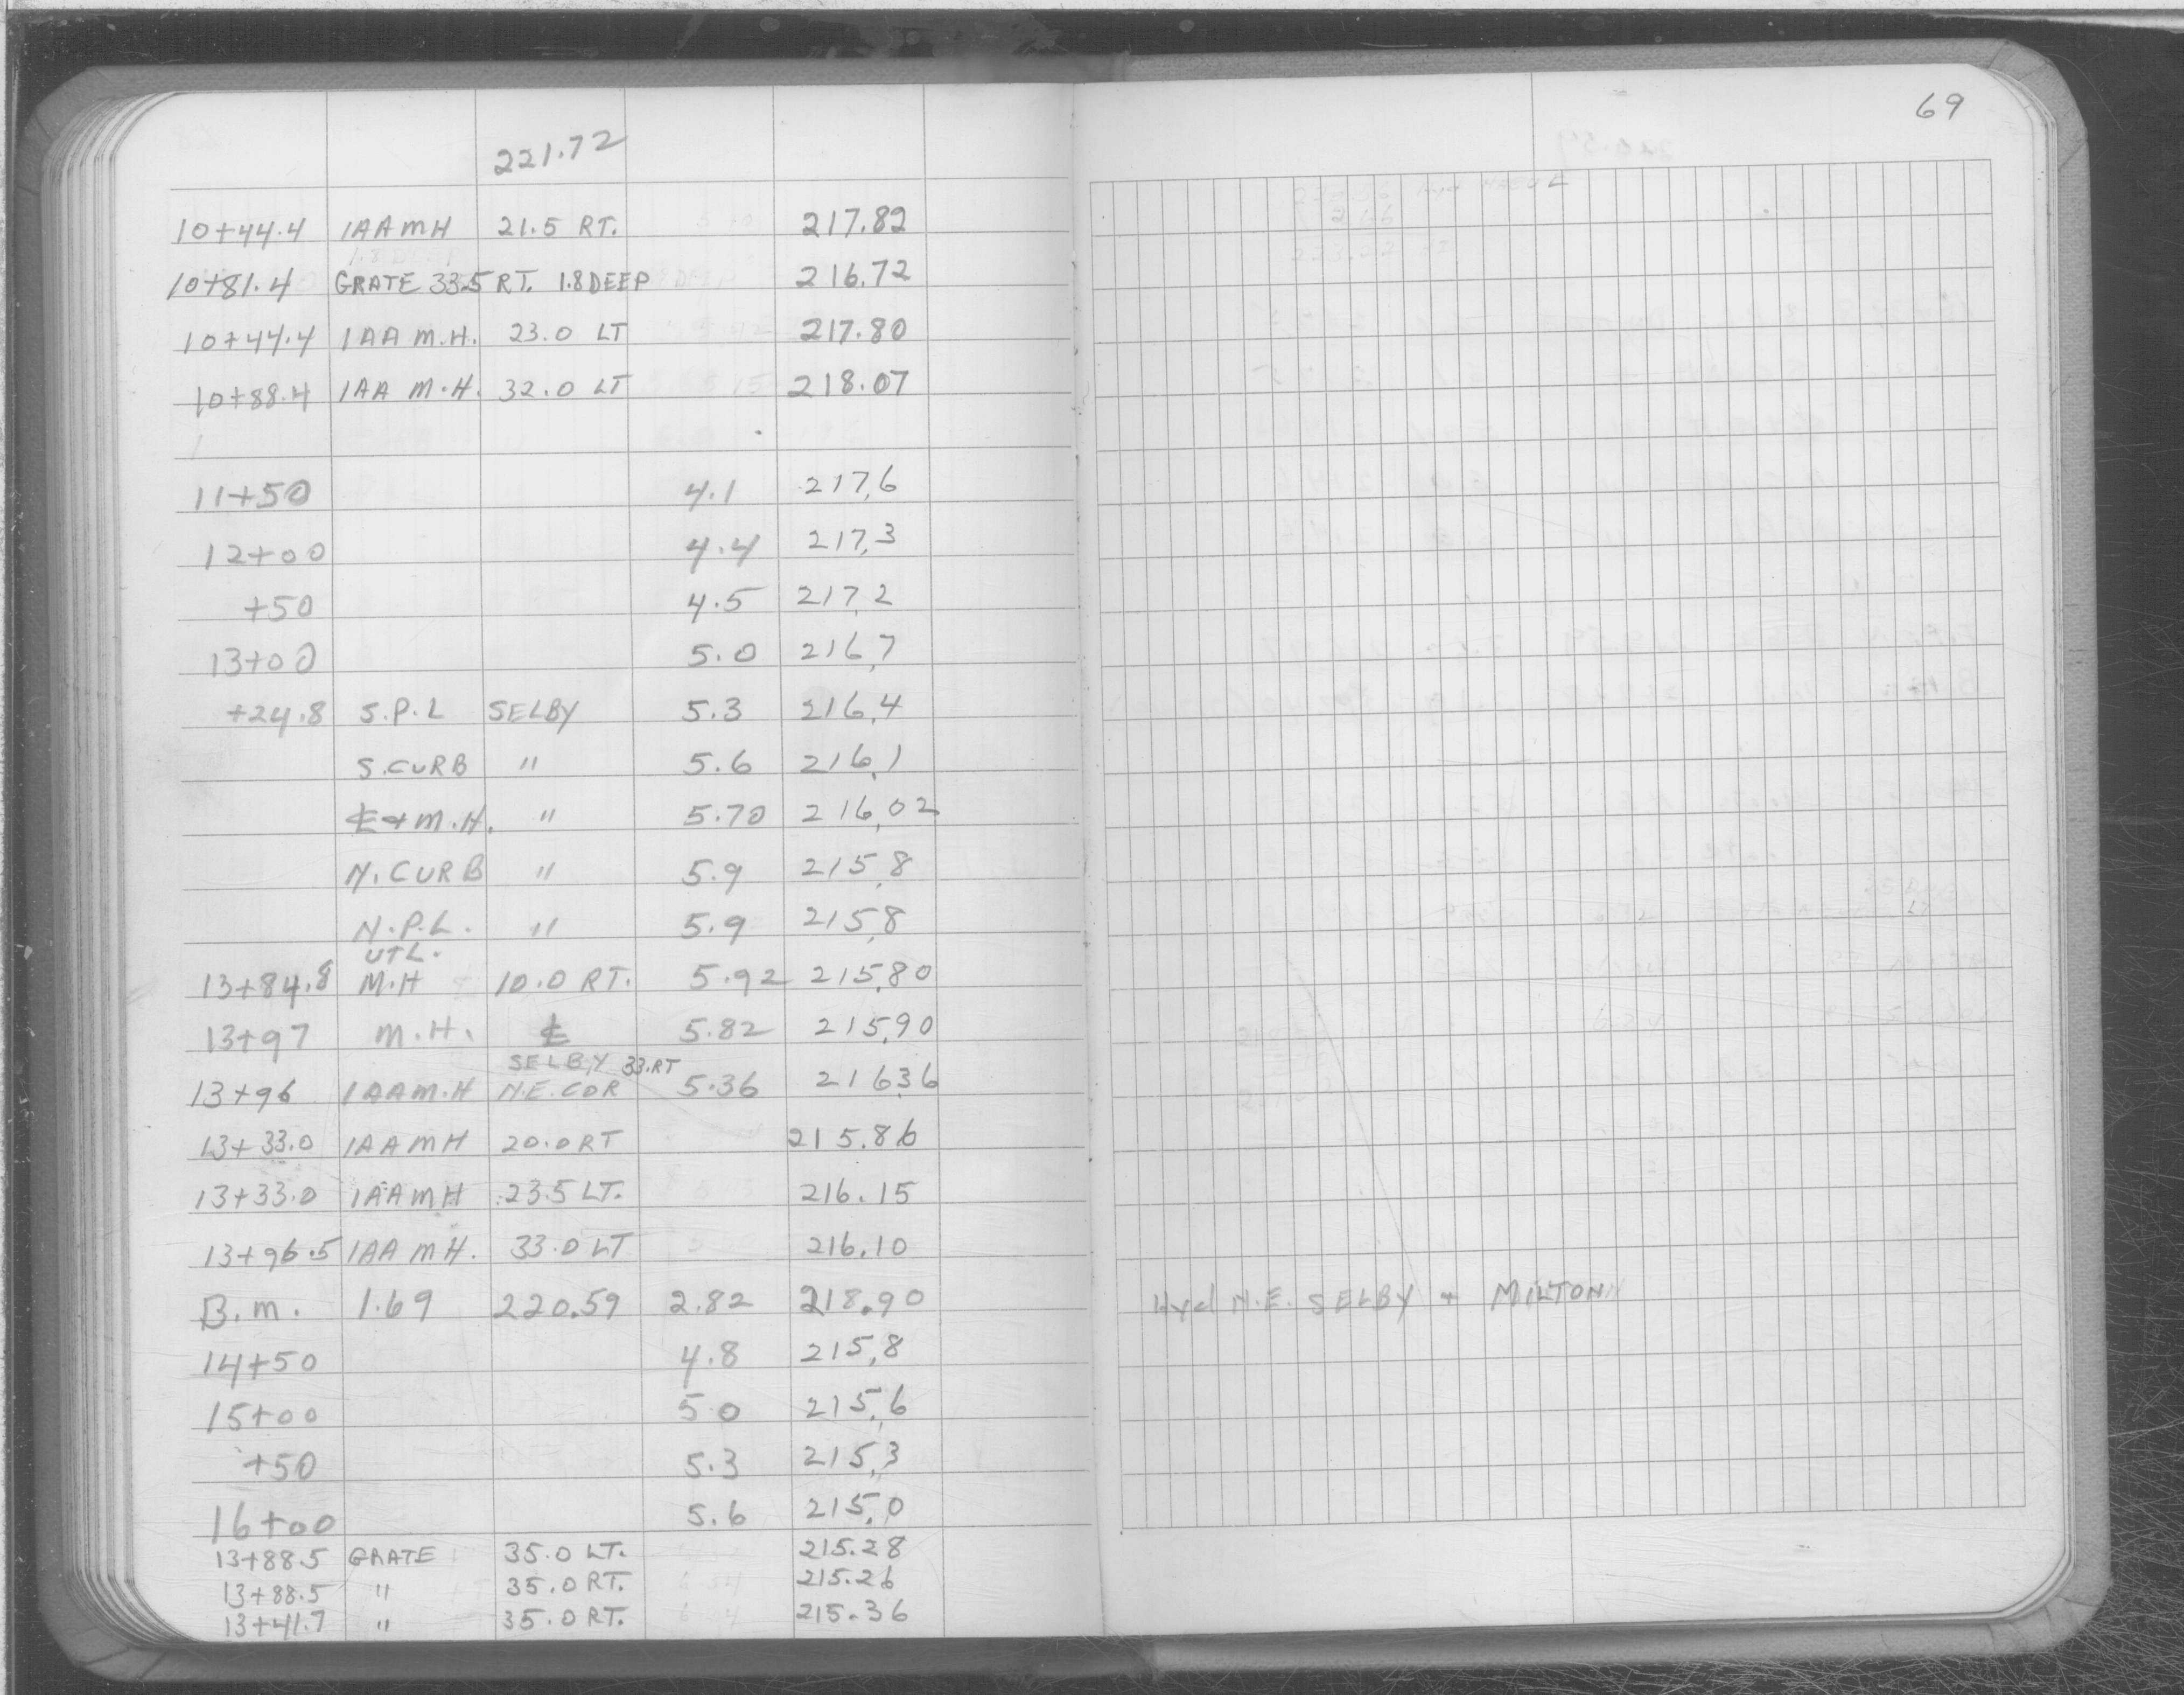 69
221.72
10+44.4 IAAMH 21.5 RT. 217.82
10+81.4 GRATE 33.5 RT. 1.8 DEEP 216.72
10+44.4 IAA M.H. 23.0 LT 217.80
10+88.4 IAA M.H. 32.0 LT 218.07
11+50 4.1 217.6
12+00 4.4 217.3
+50 4.5 217.2
13+00 5.0 216.7
+24.8 S.P.L SELBY 5.3 216.4
S.CURB " 5.6 216.1
℄+M.H. " 5.70 216.02
N.CURB " 5.9 215.8
N.P.L. " 5.9 215.8
UTL.
13+84.8 M.H 10.0 RT. 5.92 215.80
13+97 M.H. ℄ 5.82 215.90
SELBY 33.RT
13+96 IAAM.H N.E.COR 5.36 216.36
13+33.0 IAAMH 20.0RT 215.86
13+33.0 IAAMH 23.5 LT. 216.15
13+96.5 IAA MH. 33.0 LT 216.10
B.m. 1.69 220.59 2.82 218.90 Hyd N.E. SELBY + MILTON
14+50 4.8 215.8
15+00 5.0 215.6
+50 5.3 215.3
16+00 5.6 215.0
13+88.5 GRATE 35.0 LT. 215.28
13+88.5 " 35.0 RT. 215.26
13+41.7 " 35.0 RT. 215.36